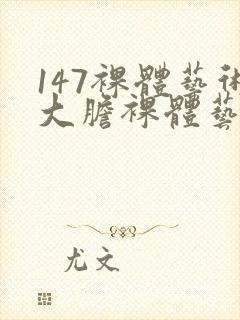 147裸體藝術
大膽裸體藝
尤文